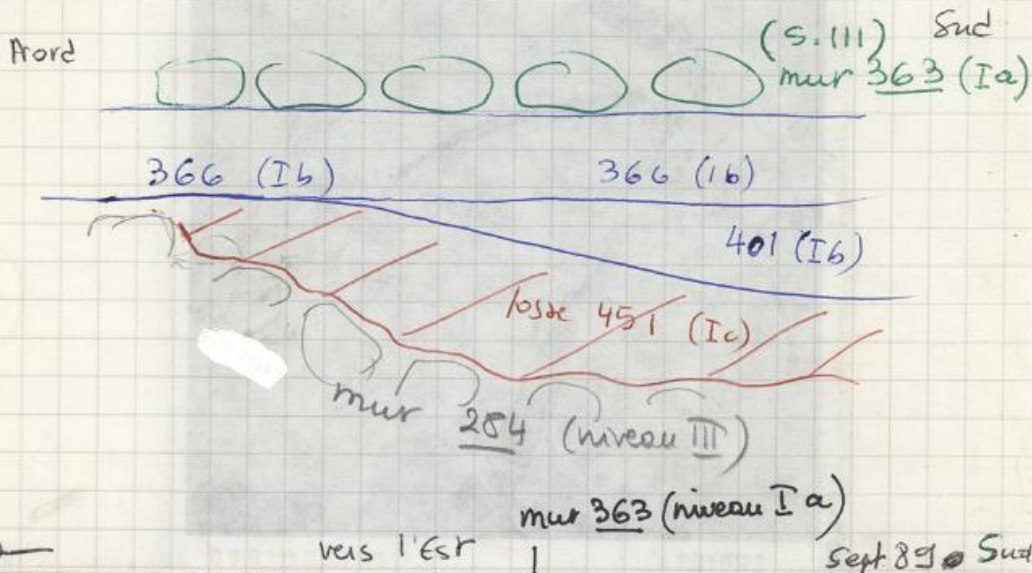 Nord
(S.III) Sud
mur 363 (Ia)
366 (Ib) 366 (Ib)
401 (Ib)
fosse 451 (Ic)
mur 284 (niveau III)
mur 363 (niveau Ia)
vers l'Est
Sept 89 Sud